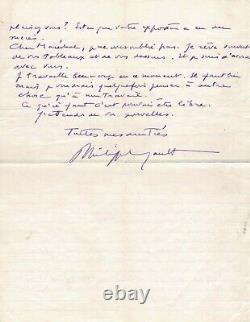 plaisez vous? Est ce que votre exposition a eu du
succès?
Cher Maréchal, je ne vous oublie pas. Je rêve souvent
de vos tableaux et de vos dessins. Et je suis d'accord
avec vous.
Je travaille beaucoup en ce moment. Il faut bien
mais je voudrais quelquefois penser à autre
chose qu'à mon travail.
Ce qu'il faut c'est pouvoir être libre.
J'attends de vos nouvelles.
Toutes mes amitiés